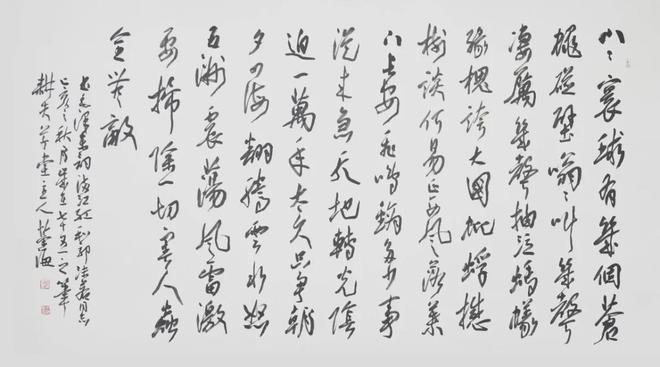 小〻寰球有幾個蒼
蠅碰壁嗡〻叫幾聲
凄厲幾聲抽泣螞蟻
緣槐誇大國蚍蜉撼
樹談何易正西風落葉
下長安飛鳴鏑多少事
從來急天地轉光陰
迫一萬年太久只爭朝
夕四海翻騰雲水怒
五洲震蕩風雷激
要掃除一切害人蟲
全無敵
書毛澤東詞滿江紅和郭沫若同志
己亥之秋月 七十五 之筆
草堂主人